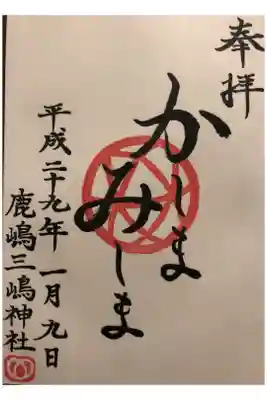 奉拝
かしま
みしま
平成二十九年 一月九日
鹿嶋三嶋神社